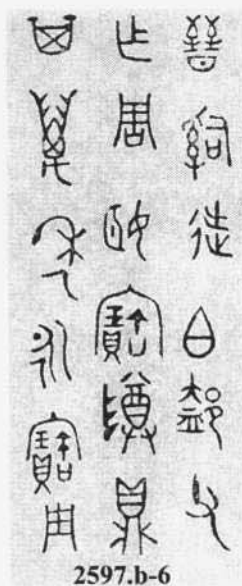 晉𤔲徒白父
乍周姬寶尊鼎
其萬年永寶用
2597.b-6